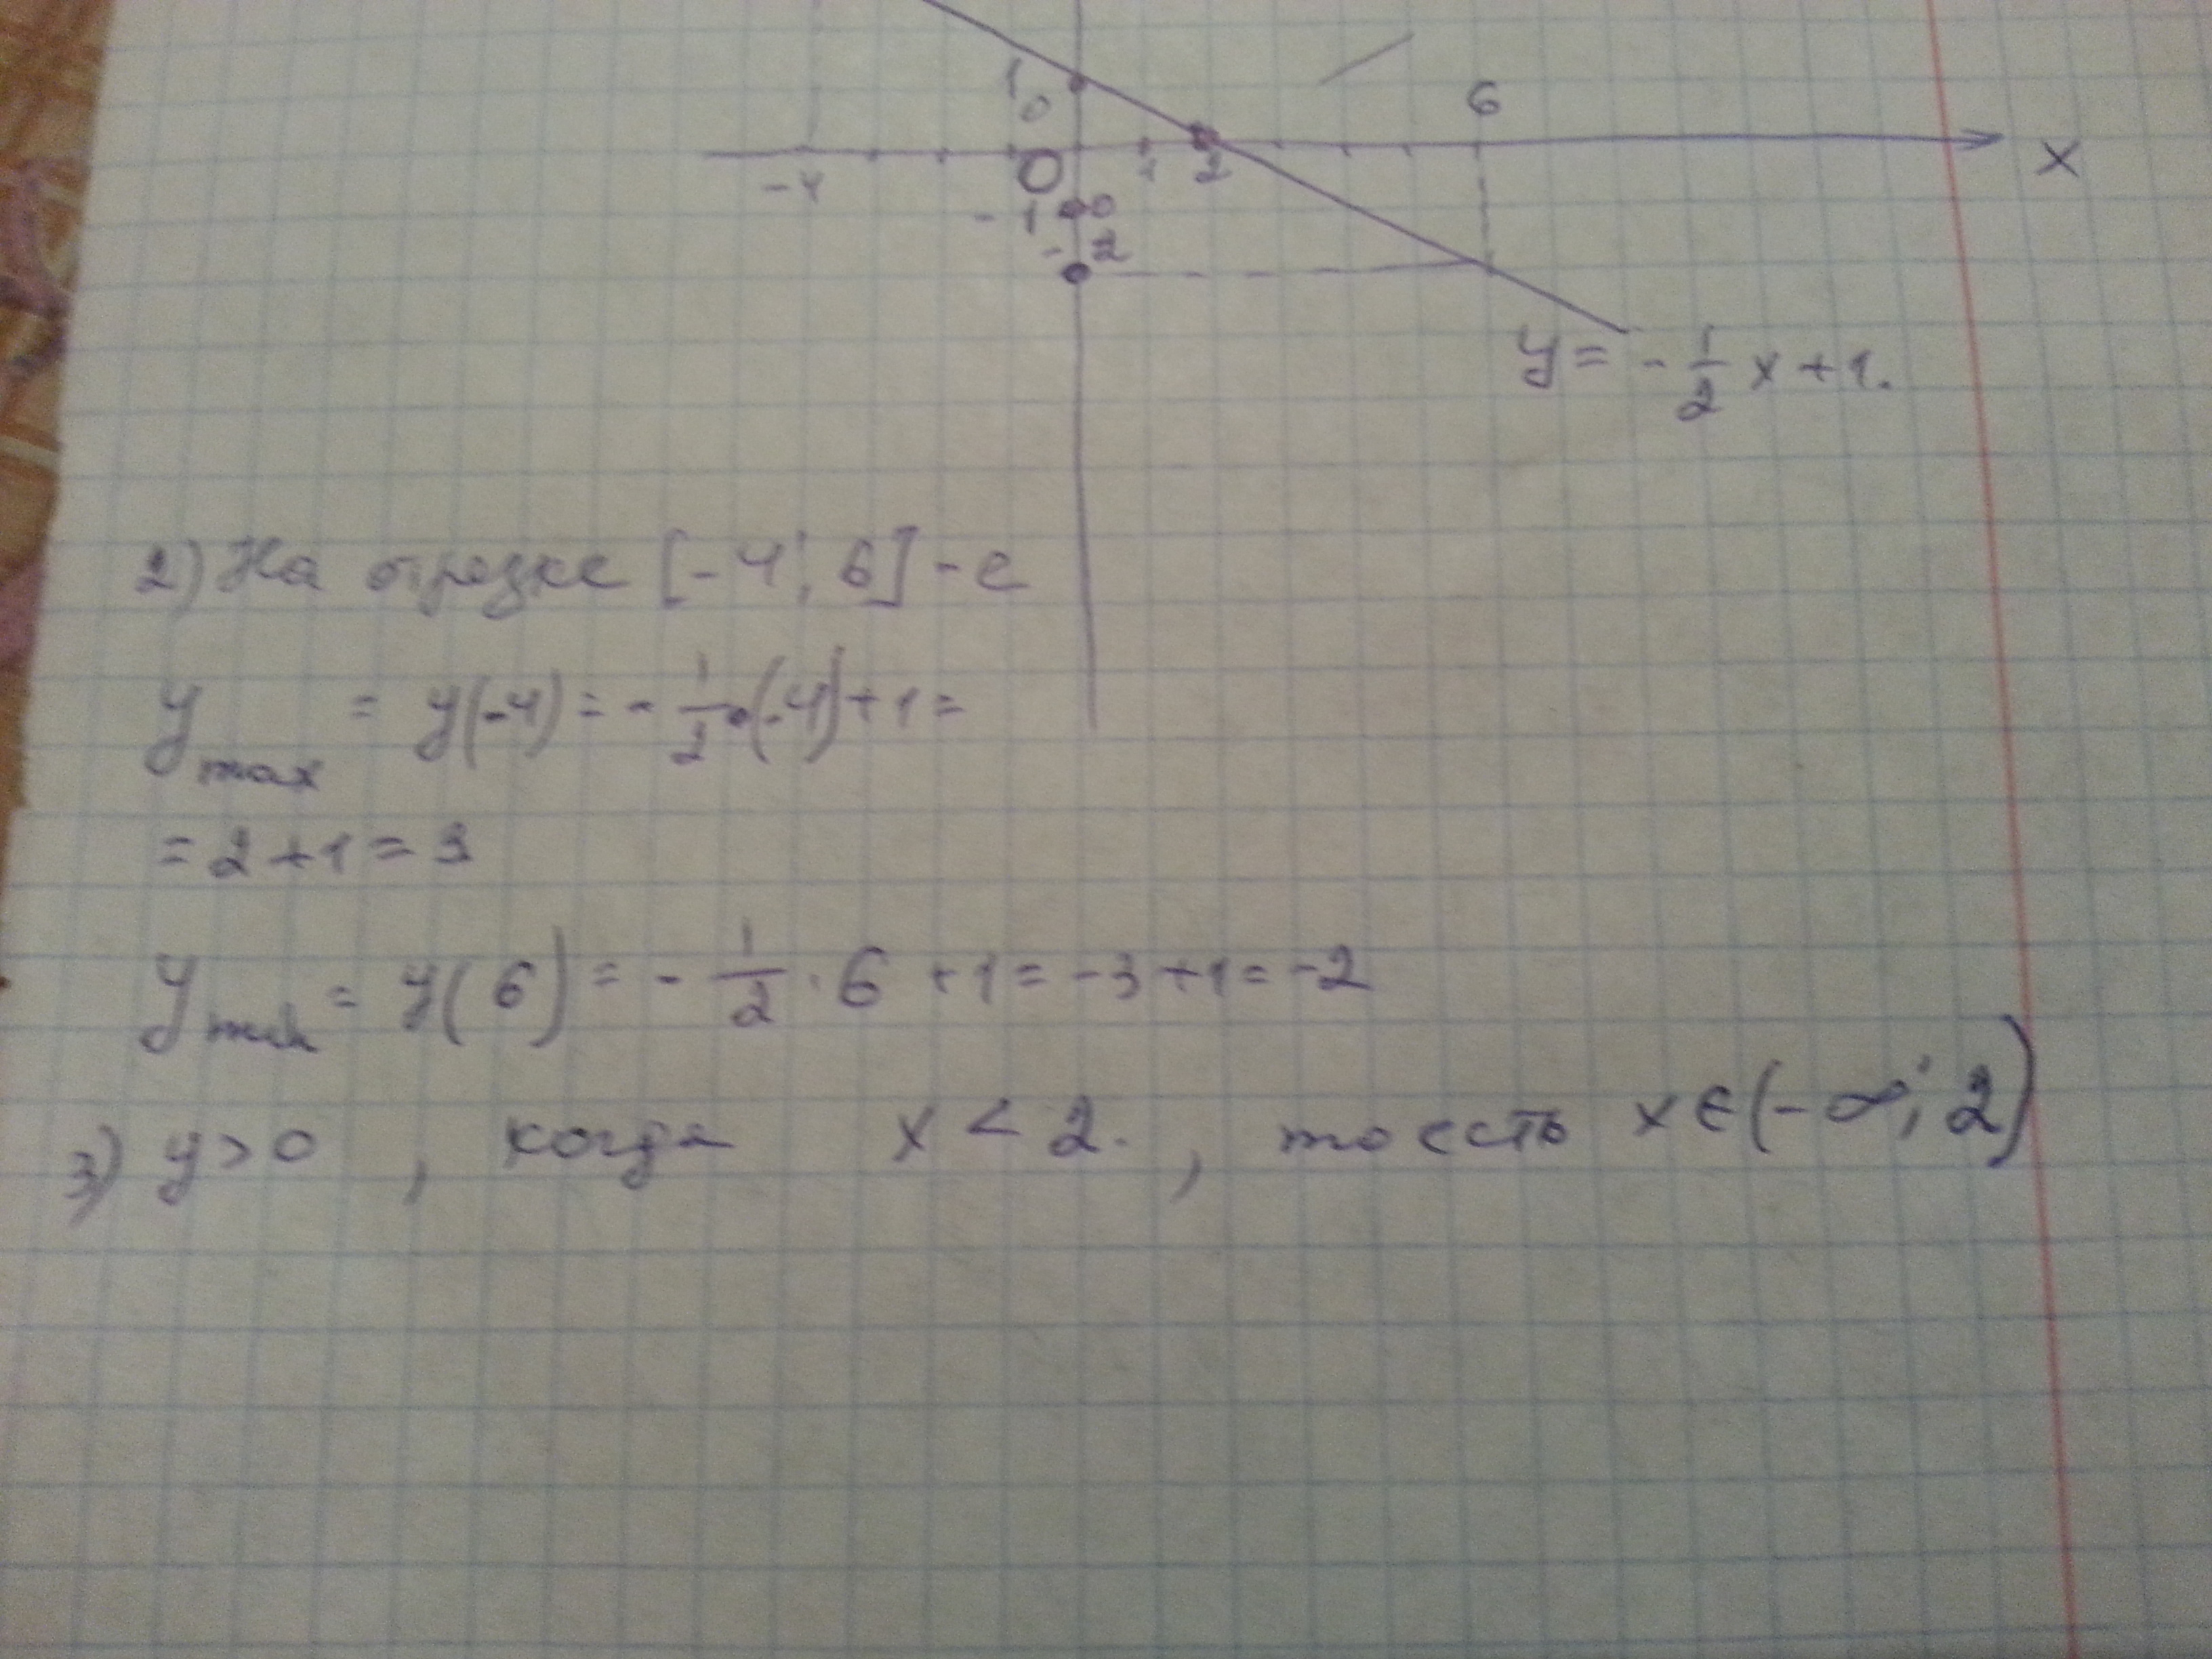 1 0
6
-4 0 1 2 x
-1 0
-2
y = - 1/2 x + 1.
2) На отрезке [-4; 6] - е
y max = y(-4) = - 1/2 · (-4) + 1 =
= 2 + 1 = 3
y min = y( 6) = - 1/2 · 6 + 1 = -3 + 1 = -2
3) y > 0 , когда x < 2. , то есть x ∈ (- ∞; 2)